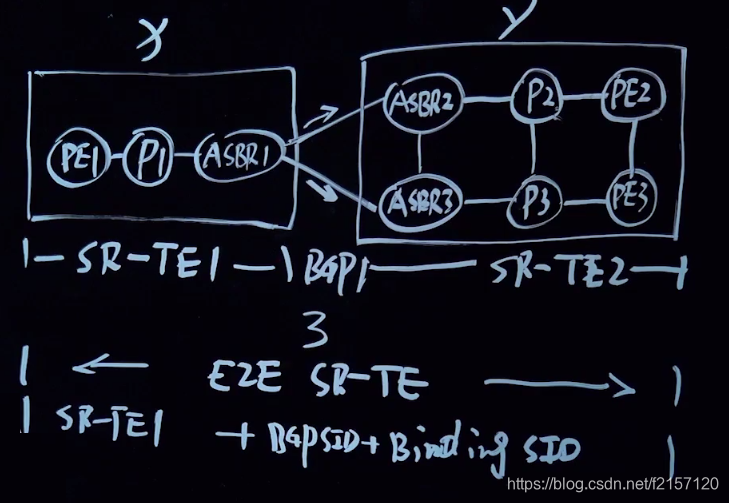 X
Y
PE1 P1 ASBR1
ASBR2 P2 PE2
ASBR3 P3 PE3
SR-TE1 BGP SR-TE2
3
E2E SR-TE
SR-TE1 + BGPSID + Binding SID
https://blog.csdn.net/f2157120